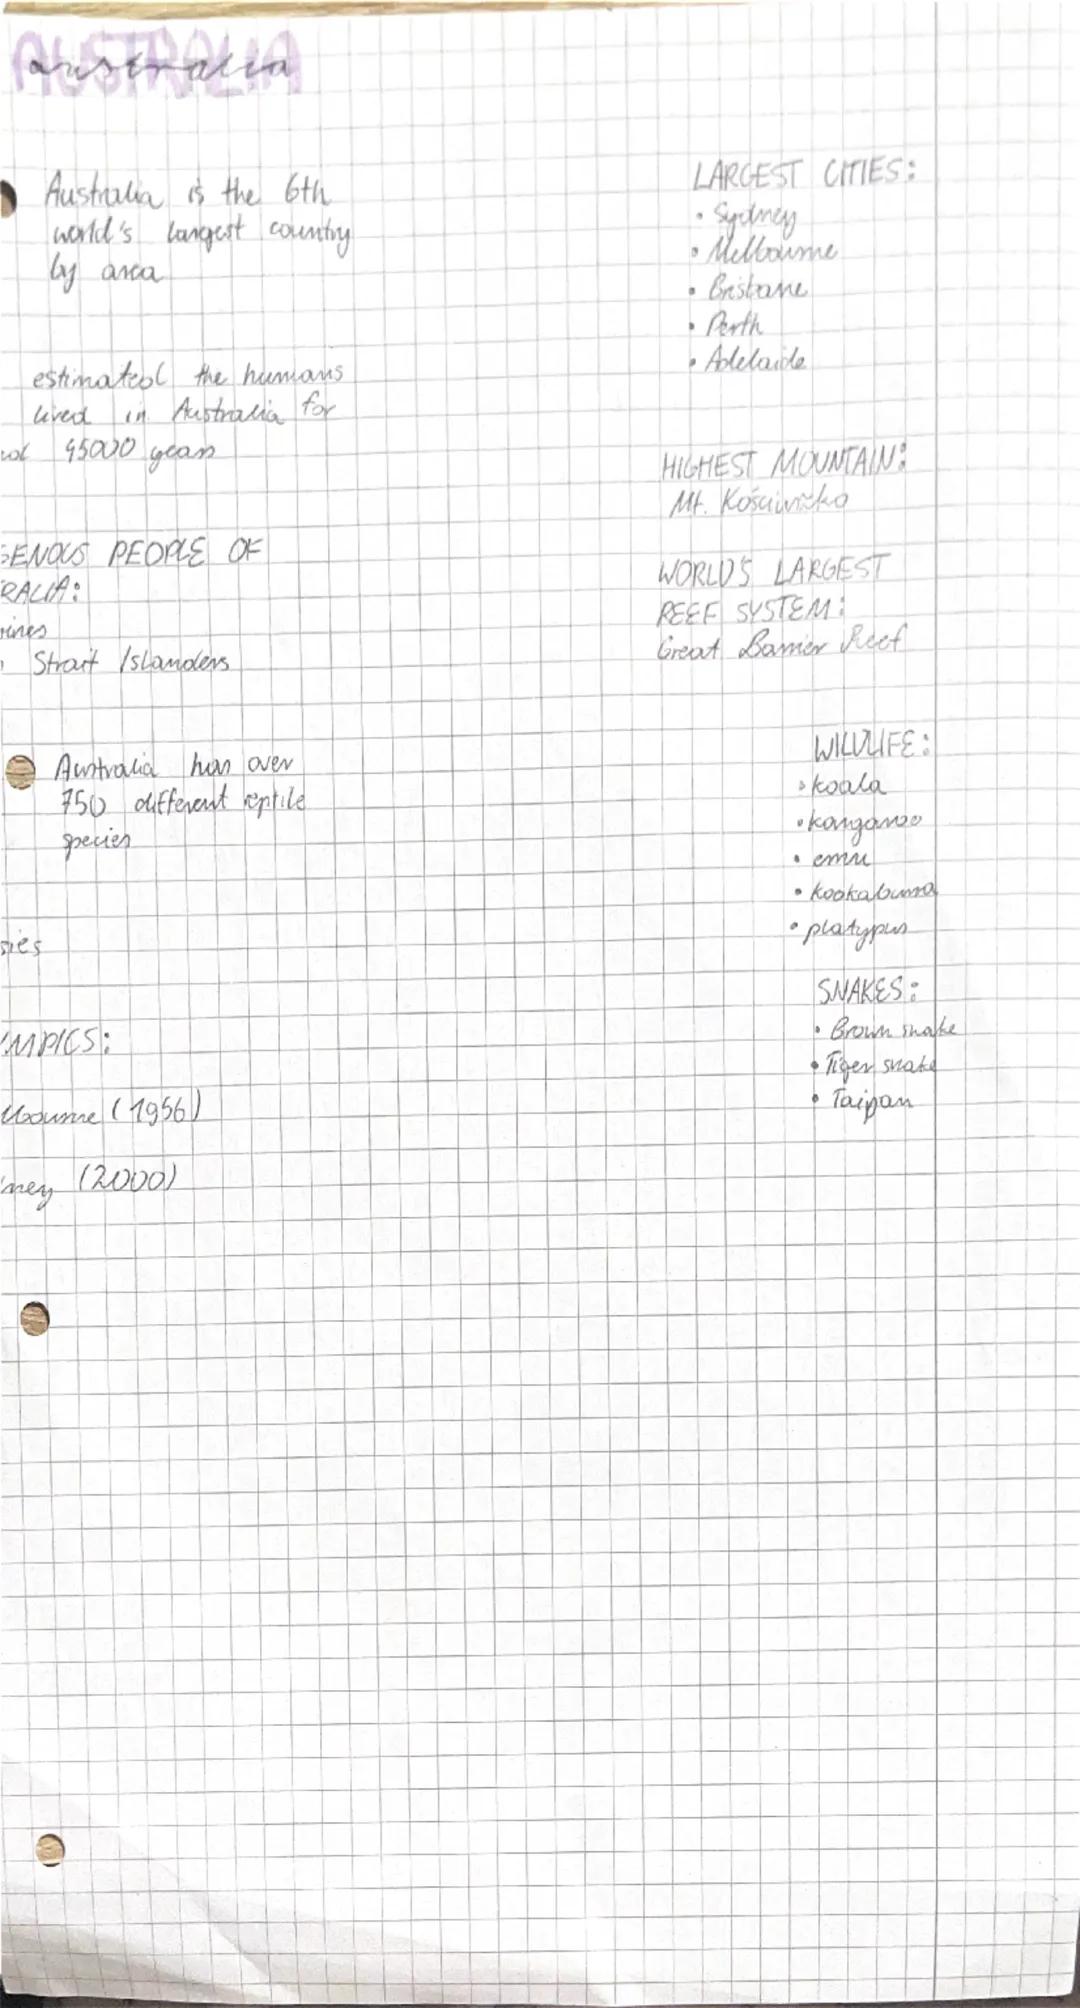 AUSTRALIA
australia
Australia is the 6th
world's largest country
by area
estimated the humans
lived in Australia for
45000 years
GENOUS PEOPLE OF
RALIA:
rines
Strait Islanders
Australia has over
750 different reptile
species
sies
MPICS:
lbourne (1956)
ney (2000)
LARGEST CITIES:
• Sydney
• Melbourne
• Brisbane
• Perth
• Adelaide
HIGHEST MOUNTAIN:
Mt. Kościuszko
WORLD'S LARGEST
REEF SYSTEM:
Great Barrier Reef
WILDLIFE:
• koala
• kangaroo
• emu
• kookaburra
• platypus
SNAKES:
• Brown snake
• Tiger snake
• Taipan